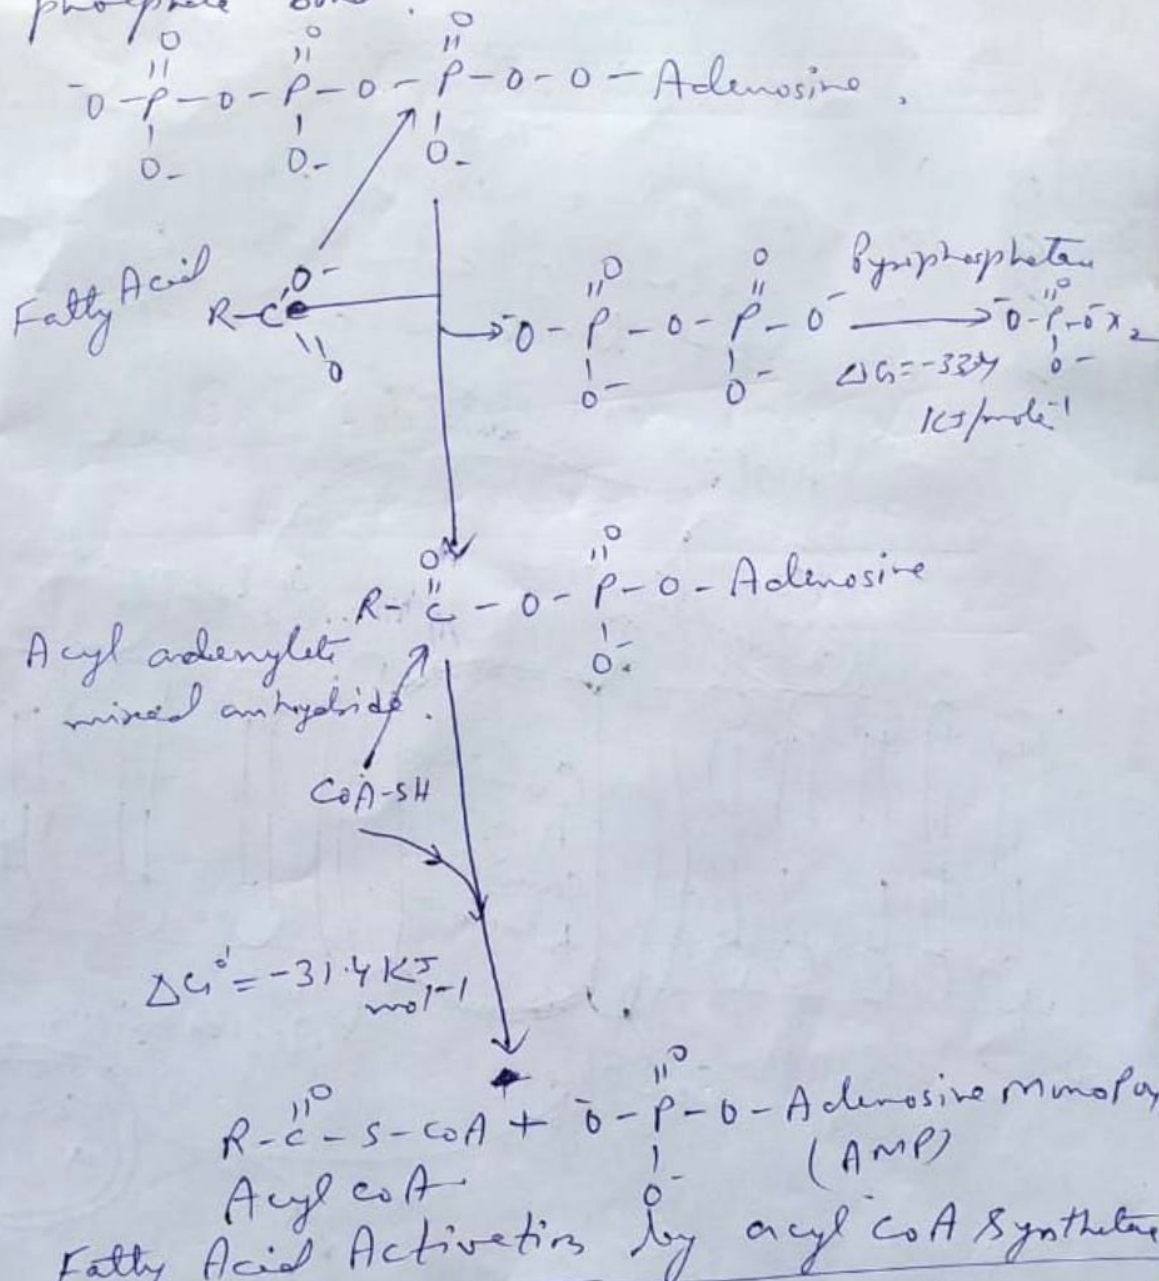 phosphate
O O O
⁻O-P-O-P-O-P-O-O-Adenosine,
O- O- O-
Fatty Acid
R-C O⁻
O
O O Pyrophosphatase
⁻O-P-O-P-O⁻ ⁻O-P-O⁻ x 2
O⁻ O⁻ O O⁻
ΔG=-33.4
KJ/mole⁻¹
O O
R-C-O-P-O-Adenosine
O⁻
Acyl adenylate
mixed anhydride.
CoA-SH
ΔG°'=-31.4 KJ
mol-1
O O
R-C-S-CoA + ⁻O-P-O-Adenosine
O⁻
(AMP)
Acyl CoA
Fatty Acid Activation by acyl CoA Synthetase